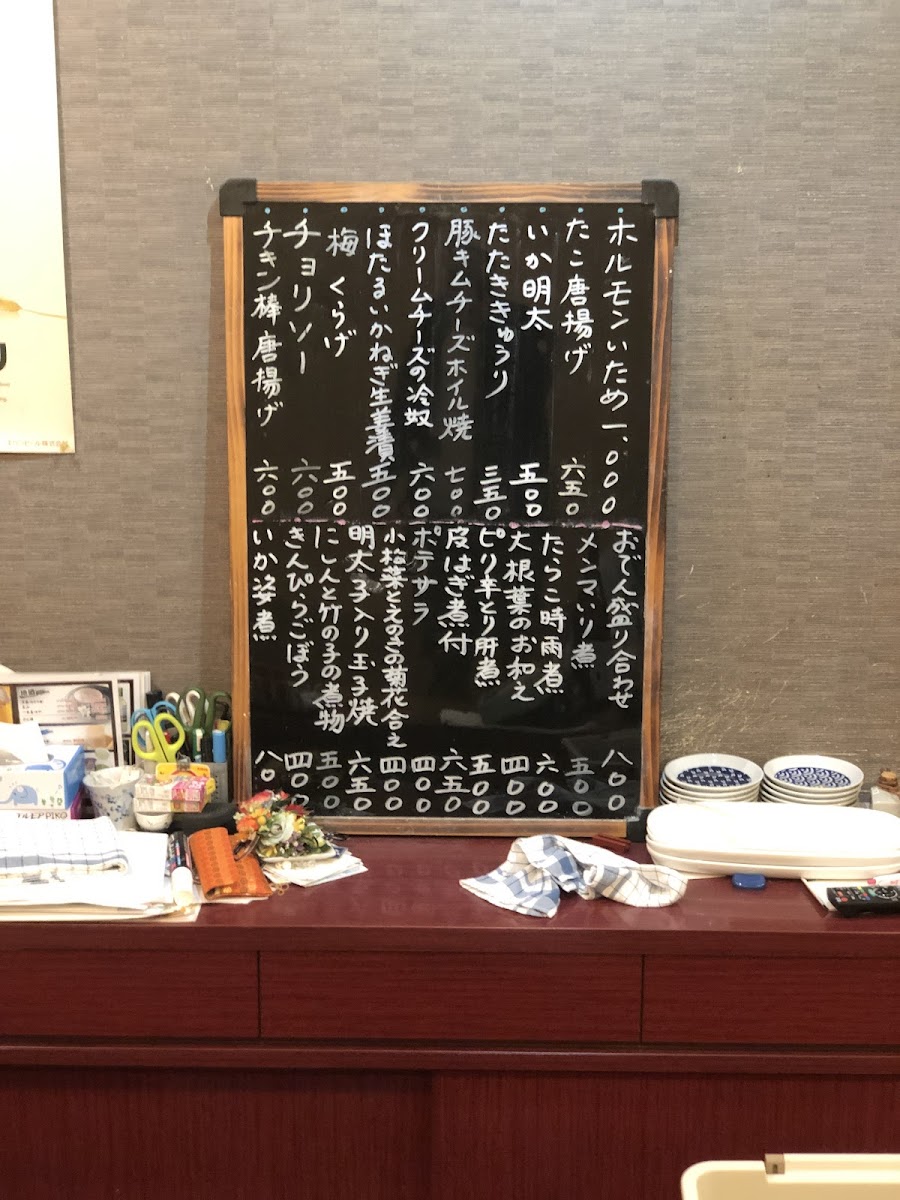 ホルモンいため 一、〇〇〇
たこ唐揚げ 六五〇
いか明太 五〇〇
たたききゅうり 三五〇
豚キムチーズホイル焼 七〇〇
クリームチーズの冷奴 六〇〇
ほたるいかねぎ生姜漬 五〇〇
梅くらげ 五〇〇
チョリソー 六〇〇
チキン棒唐揚げ 六〇〇
おでん盛り合わせ 八〇〇
メンマいり煮 五〇〇
たらこ時雨煮 六〇〇
大根葉のお和え 四〇〇
ピリ辛とり肝煮 五〇〇
皮はぎ煮付 六五〇
ポテサラ 四〇〇
小松菜とえのきの菊花合え 四〇〇
明太子入り玉子焼 六五〇
にしんと竹の子の煮物 五〇〇
きんぴらごぼう 四〇〇
いか姿煮 八〇